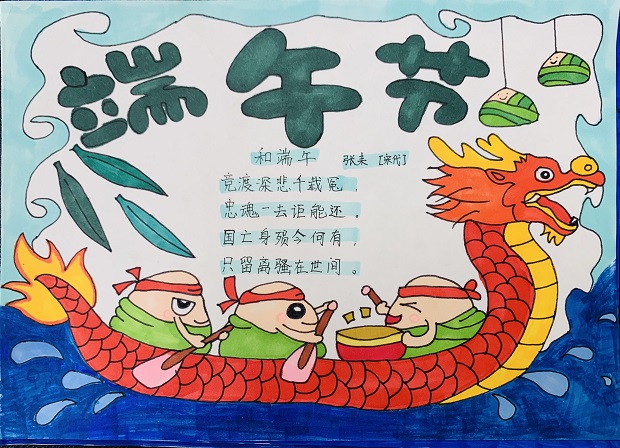 端午节
和端午 张耒 [宋代]
竞渡深悲千载冤，
忠魂一去讵能还。
国亡身殒今何有，
只留离骚在世间。